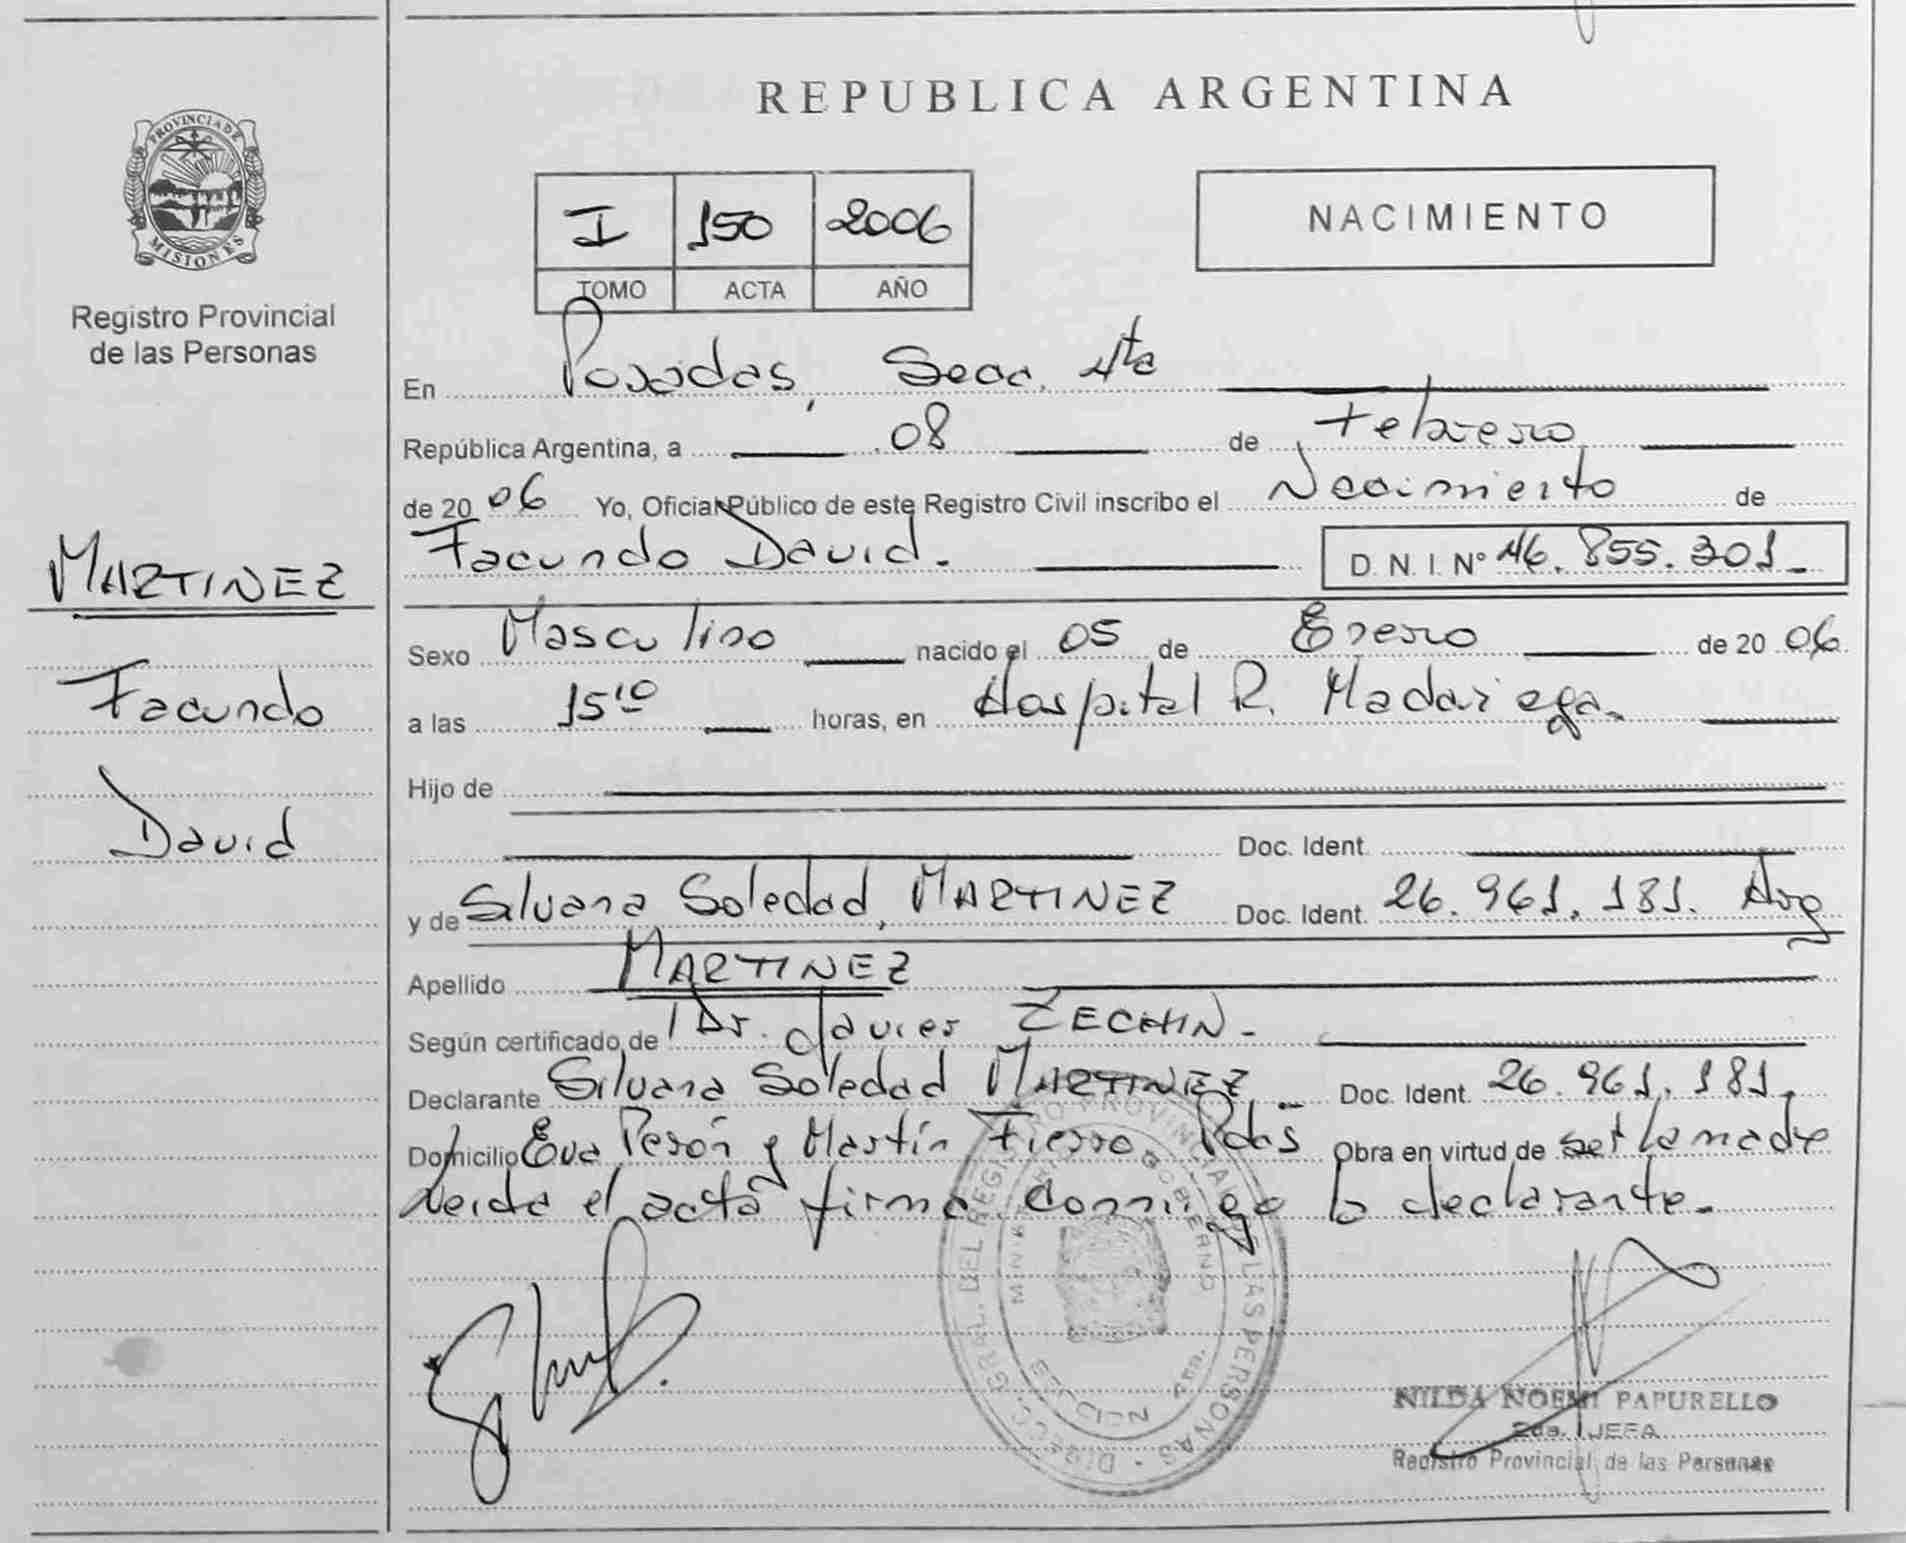 REPUBLICA ARGENTINA
PROVINCIA DE
MISIONES
Registro Provincial
de las Personas
I 150 2006
TOMO ACTA AÑO
NACIMIENTO
En Posadas, Secc. 4ta
República Argentina, a 08 de Febrero
de 2006 Yo, Oficial Público de este Registro Civil inscribo el Nacimiento de
Facundo David. D.N.I. Nº 46.855.301.
MARTINEZ
Facundo
David
Sexo Masculino nacido el 05 de Enero de 2006
a las 15 10 horas, en Hospital R. Madariaga.
Hijo de
Doc. Ident.
y de Silvana Soledad, MARTINEZ Doc. Ident. 26.961.181. Arg
Apellido MARTINEZ
Según certificado de Dr. Javier ZECHIN.
Declarante Silvana Soledad MARTINEZ Doc. Ident. 26.961.181.
Domicilio Eva Perón y Martín Fierro Pdas Obra en virtud de ser la madre
Leida el acta firma conmigo la declarante.
DIRECC. GRAL. DEL REGISTRO PROVINCIAL DE LAS PERSONAS
GOBIERNO
SECCION
NILDA NOEMI PAPURELLO
2da. JEFA
Registro Provincial de las Personas